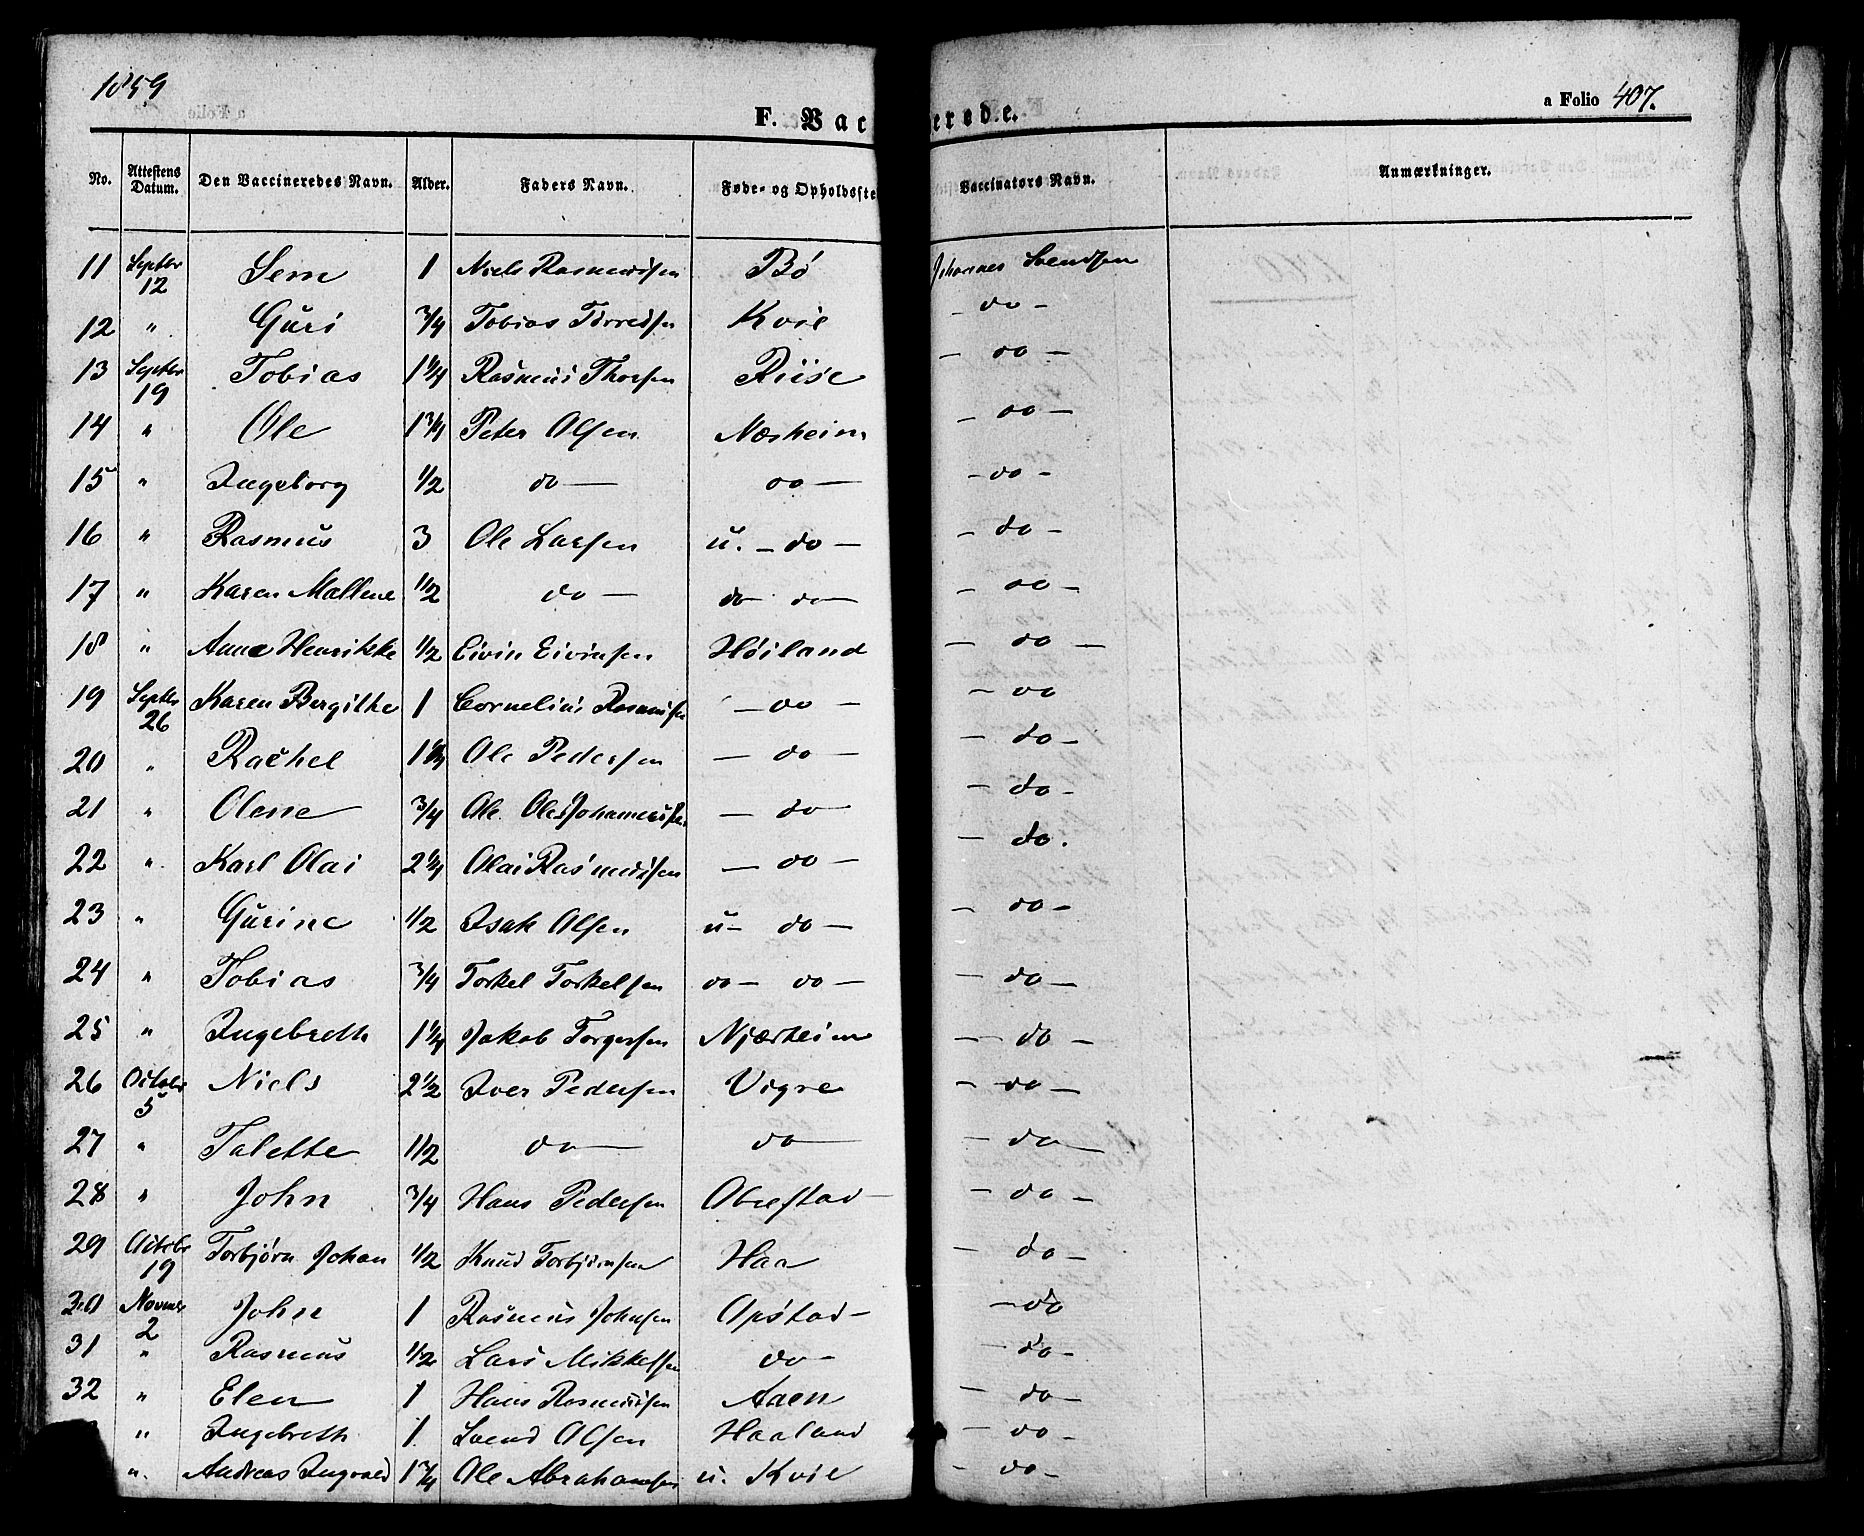 1859
a Folio 407.
F. Vac erede.
No. Attestens Datum. Den Vaccineredes Navn. Alder. Faders Navn. Føde- og Opholdsste Vaccinators Navn. Anmærkninger.
11 Septbr 12 Sem 1 Niels Rasmussen Bø Johannes Svendsen
12 " Guri 3/4 Tobias Kvie - do -
13 Septbr 19 Tobias 1 1/4 Rasmus Thorsen Riise - do -
14 " Ole 1 3/4 Peter Olsen Næsheim - do -
15 " Ingeborg 1/2 do - do - - do -
16 " Rasmus 3 Ole Larsen u. - do - - do -
17 " Karen Mallene 1/2 do - do do - - do -
18 " Anne Henrikke 1/2 Eivin Eivinsen Høiland - do -
19 Septbr 26 Karen Bergithe 1 Cornelius Rasmussen - do - - do
20 " Rachel Ole Pedersen - do - - do -
21 " Olene 3/4 Ole - do - - do -
22 " Karl Olai 2 1/4 Olai Rasmussen - do - - do.
23 " Gurine 1/2 Isak Olsen u - do - - do -
24 " Tobias 3/4 Torkel Torkelsen do - do - - do -
25 " Ingebreth 1 1/4 Jakob Torgersen Njærheim - do -
26 Octobr 5 Niels 2 1/2 Iver Pedersen Vigre - do -
27 " Talette 1/2 do - do - - do -
28 " John 3/4 Hans Pedersen Obrestad - - do -
29 Octobr 19 Torbjørn Johan 1/2 Knud Torbjørnsen Haa - do -
30 Novmbr 2 John 1 Rasmus Johnsen Opstad - - do
31 " Rasmus 1/2 Lars Mikkelsen do - - do -
32 " Elen 1 Hans Rasmussen Aaen - do -
" Ingebreth 1 Svend Olsen Haaland - do -
" Andreas Ingvald 1 3/4 Ole Abrahamsen u. Kvie - do -